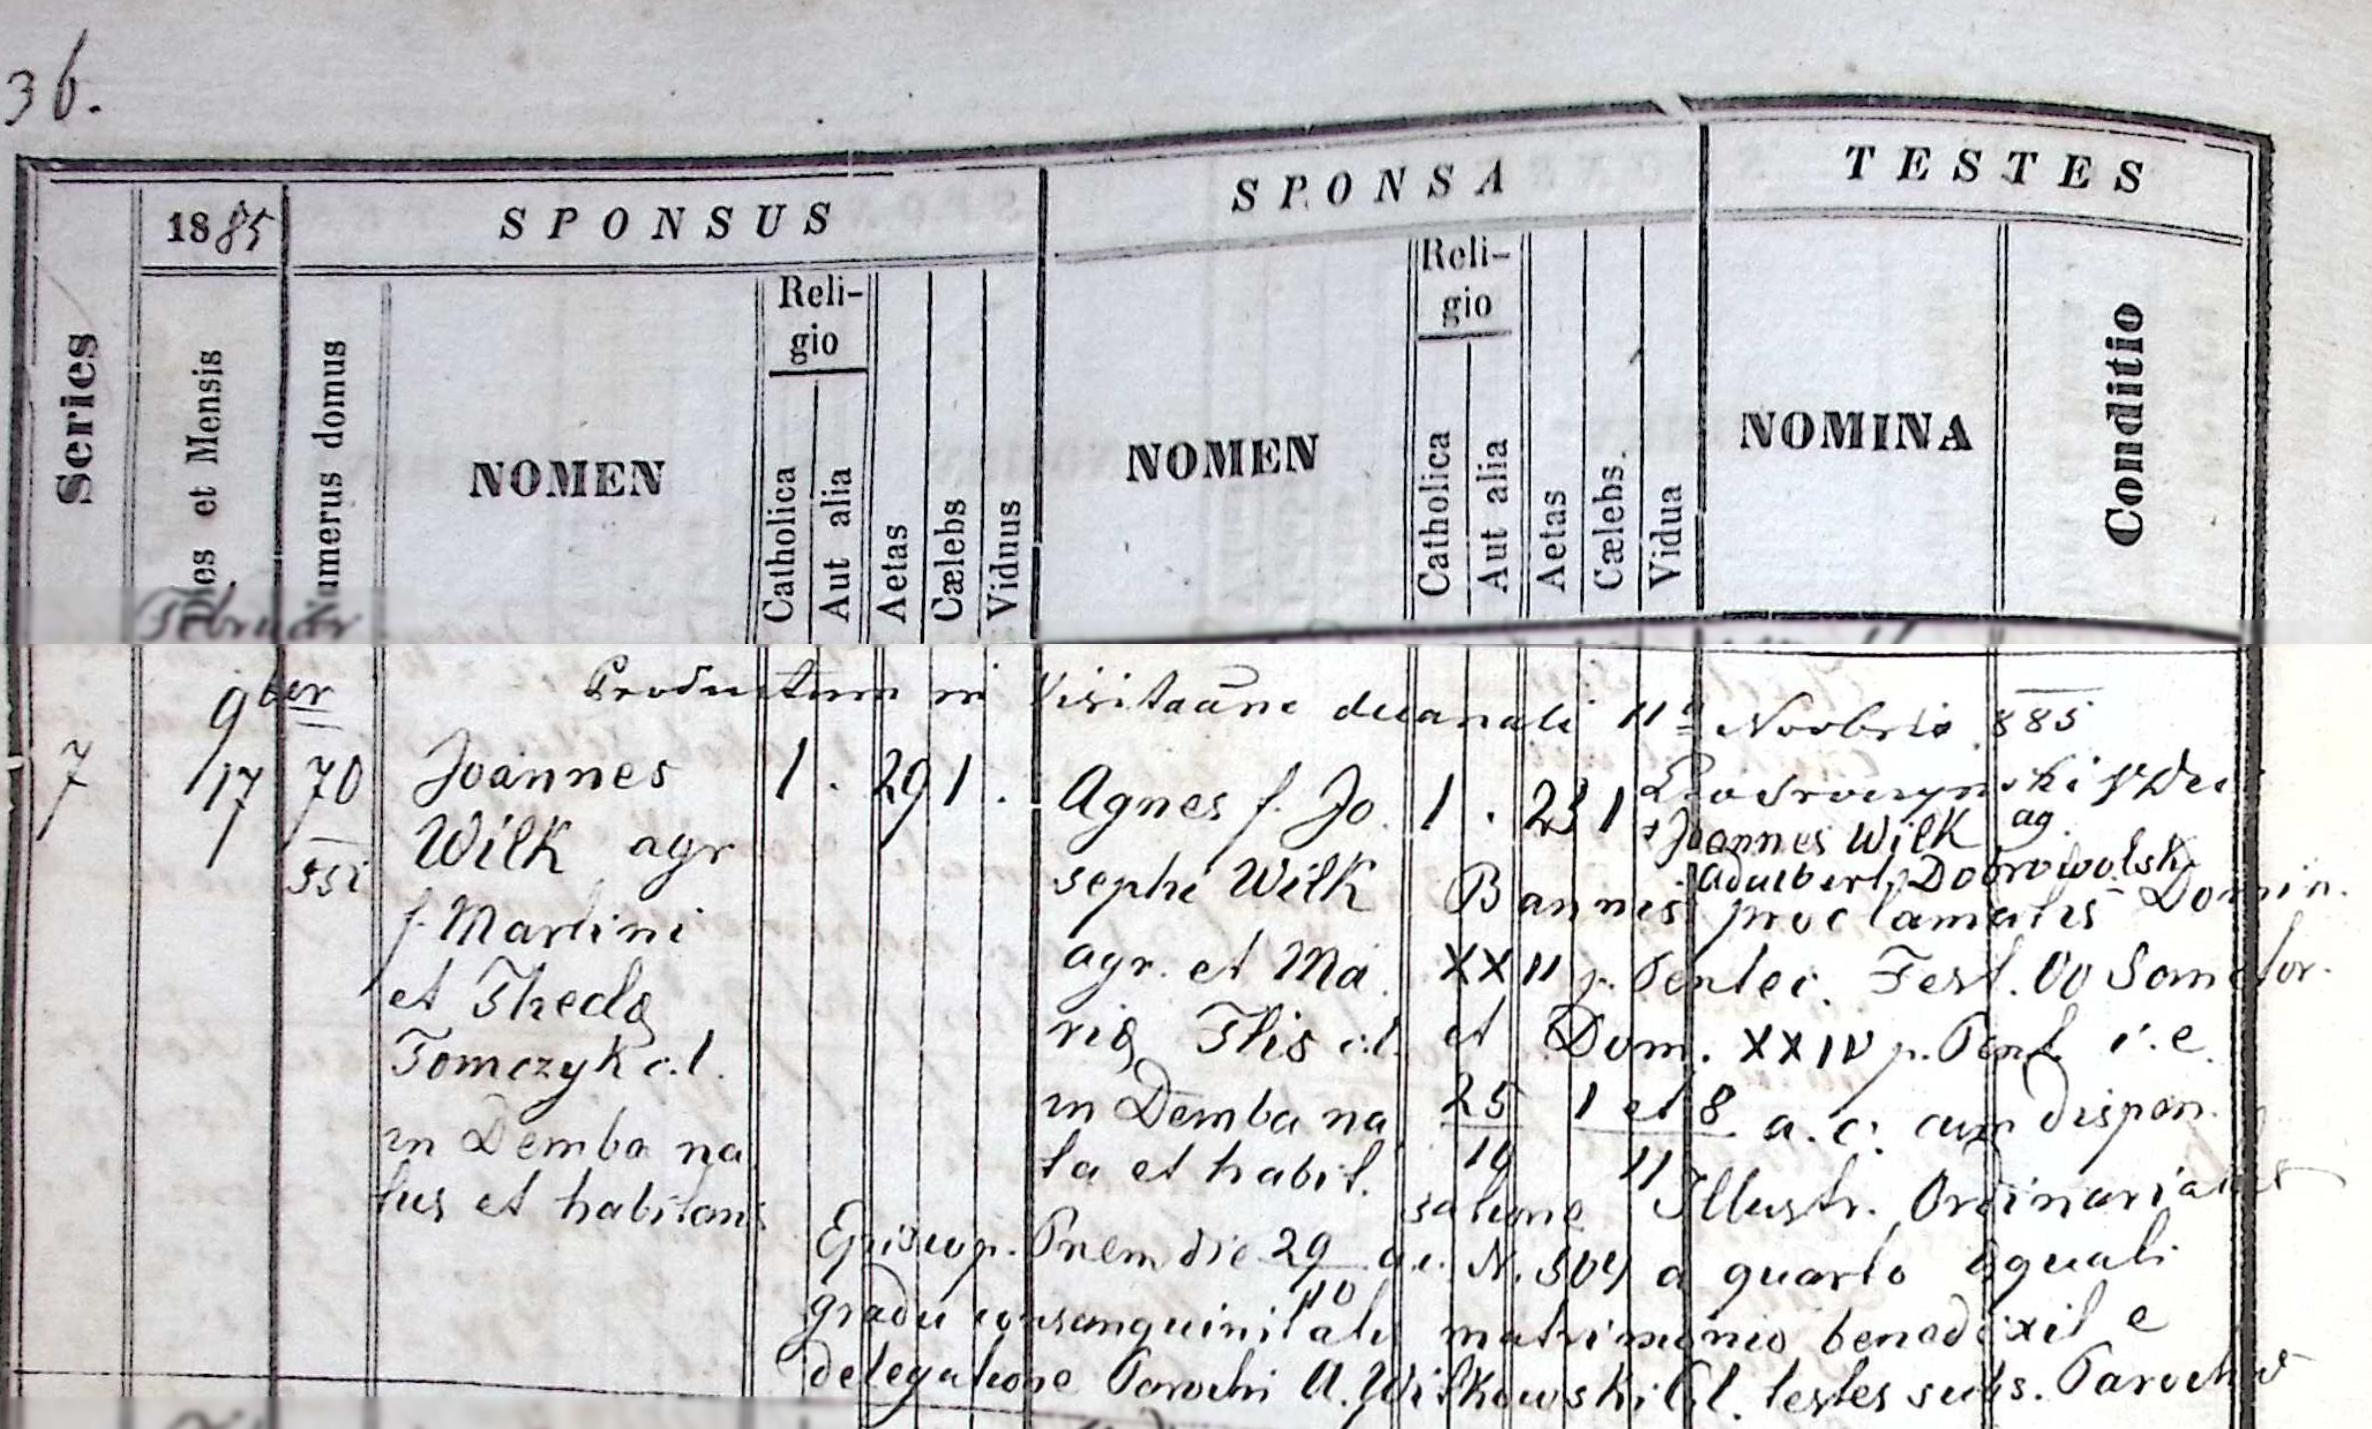 36.
SPONSUS
SPONSA
TESTES
1885
Series
Dies et Mensis
Numerus domus
NOMEN
Religio
Catholica
Aut alia
Aetas
Cælebs
Viduus
NOMEN
Religio
Catholica
Aut alia
Aetas
Cælebs.
Vidua
NOMINA
Conditio
Februar
9ber
Productum in visitatione decanali 11a Novbris 885
7 17 70
Joannes 1 . 29 1 .
Wilk agr
f. Martini
et Thecla
Tomczyk c.l.
in Demba na
tus et habitans
Agnes f. Jo 1 . 23 1
sephi Wilk
agr. et Ma
ria Flis c.l.
in Demba na
ta et habit.
+Joannes Wilk ag.
Adalbert Dobrowolski
Bannis proclamatis Domin.
XXII p. Pentec. Fest. OO Sanctor.
et Dom. XXIV p. Pent. i.e.
25/10 1 et 8/11 a.c. cum dispen
satione Illustr. Ordinariatus
Episcop. Prem die 29/10 a.c. N. 504 a quarto aequali
gradu consanguinitatis matrimonio benedixit e
delegatione Parochi A. Witkowski C.l. testes subs. Parochus